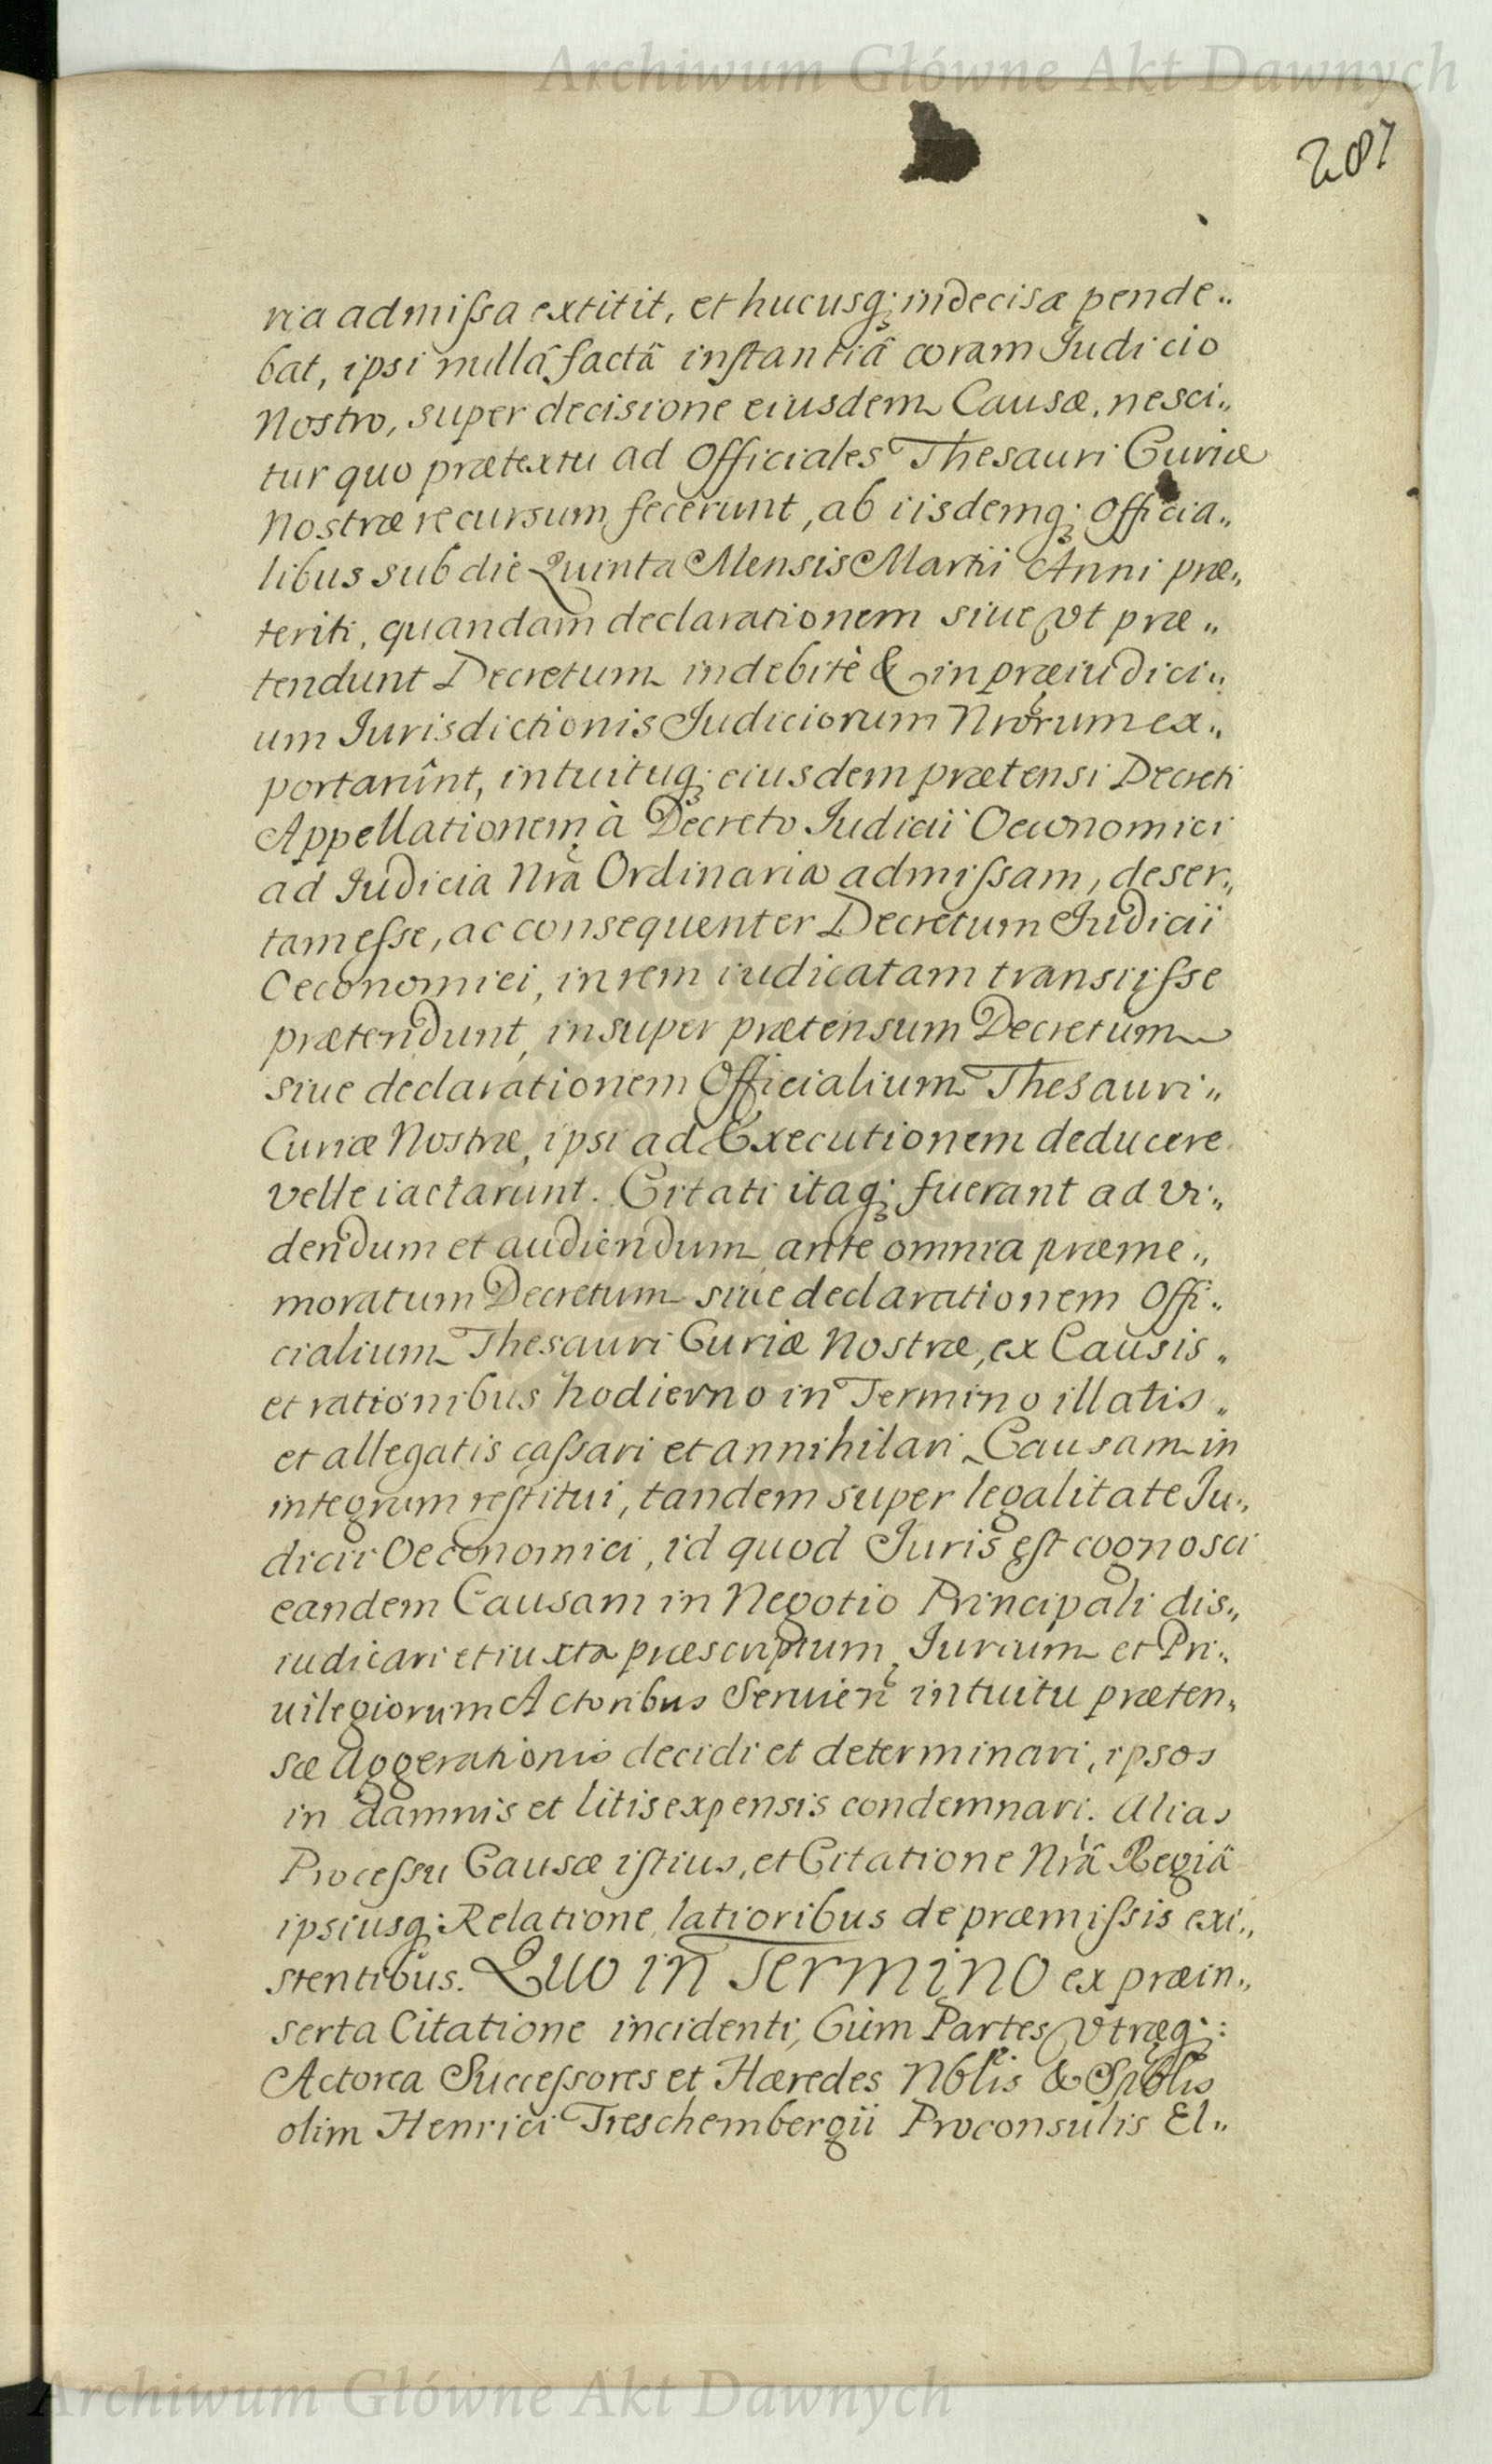 Archiwum Główne Akt Dawnych
287
ria admiſsa extitit, et hucusq; indecisa pende„
bat, ipsi nullâ factâ inſtantiâ coram Judicio
Nostro, super decisione eiusdem Causæ, nesci„
tur quo prætextu ad Officiales Thesauri Curiæ
Nostræ recursum fecerunt, ab iisdemq; Officia„
libus sub die Quinta Mensis Martii Anni præ„
teriti, quandam declarationem siue vt præ„
tendunt Decretum indebitè & in præiudici„
um Jurisdictionis Judiciorum Nrorum ex„
portarûnt, intuituq; eiusdem prætensi Decreti
Appellationem à Decreto Judicii Oeconomici
ad Judicia Nra Ordinaria admiſsam, deser„
tam eſse, ac consequenter Decretum Judicii
Oeconomici, in rem iudicatam transiiſse
prætendunt, insuper prætensum Decretum
siue declarationem Officialium Thesauri„
Curiæ Nostræ, ipsi ad Executionem deducere
velle iactarunt. Citati itaq; fuerant ad vi„
dendum et audiendum ante omnia præme„
moratum Decretum siue declarationem Offi„
cialium Thesauri Curiæ Nostræ, ex Causis„
et rationibus hodierno in Termino illatis„
et allegatis caſsari et annihilari, Causam in
integrum reſtitui, tandem super legalitate Ju„
dicii Oeconomici, id quod Juris eſt cognosci
eandem Causam in Negotio Principali dis„
iudicari et iuxta præscriptum Jurium et Pri„
uilegiorum Actoribus Seruien intuitu præten„
sæ Aggerationis decidi et determinari, ipsos
in damnis et litis expensis condemnari. Alias
Proceſsu Causæ iſtius, et Citatione Nrâ Regiâ
ipsiusq; Relatione latioribus de præmiſsis exi„
stentibus. Quo in Termino ex præin„
serta Citatione incidenti, Cùm Partes vtræq;:
Actorea Succeſsores et Hæredes Nblis & Spblis
olim Henrici Treschembergii Proconsulis El„
Archiwum Główne Akt Dawnych